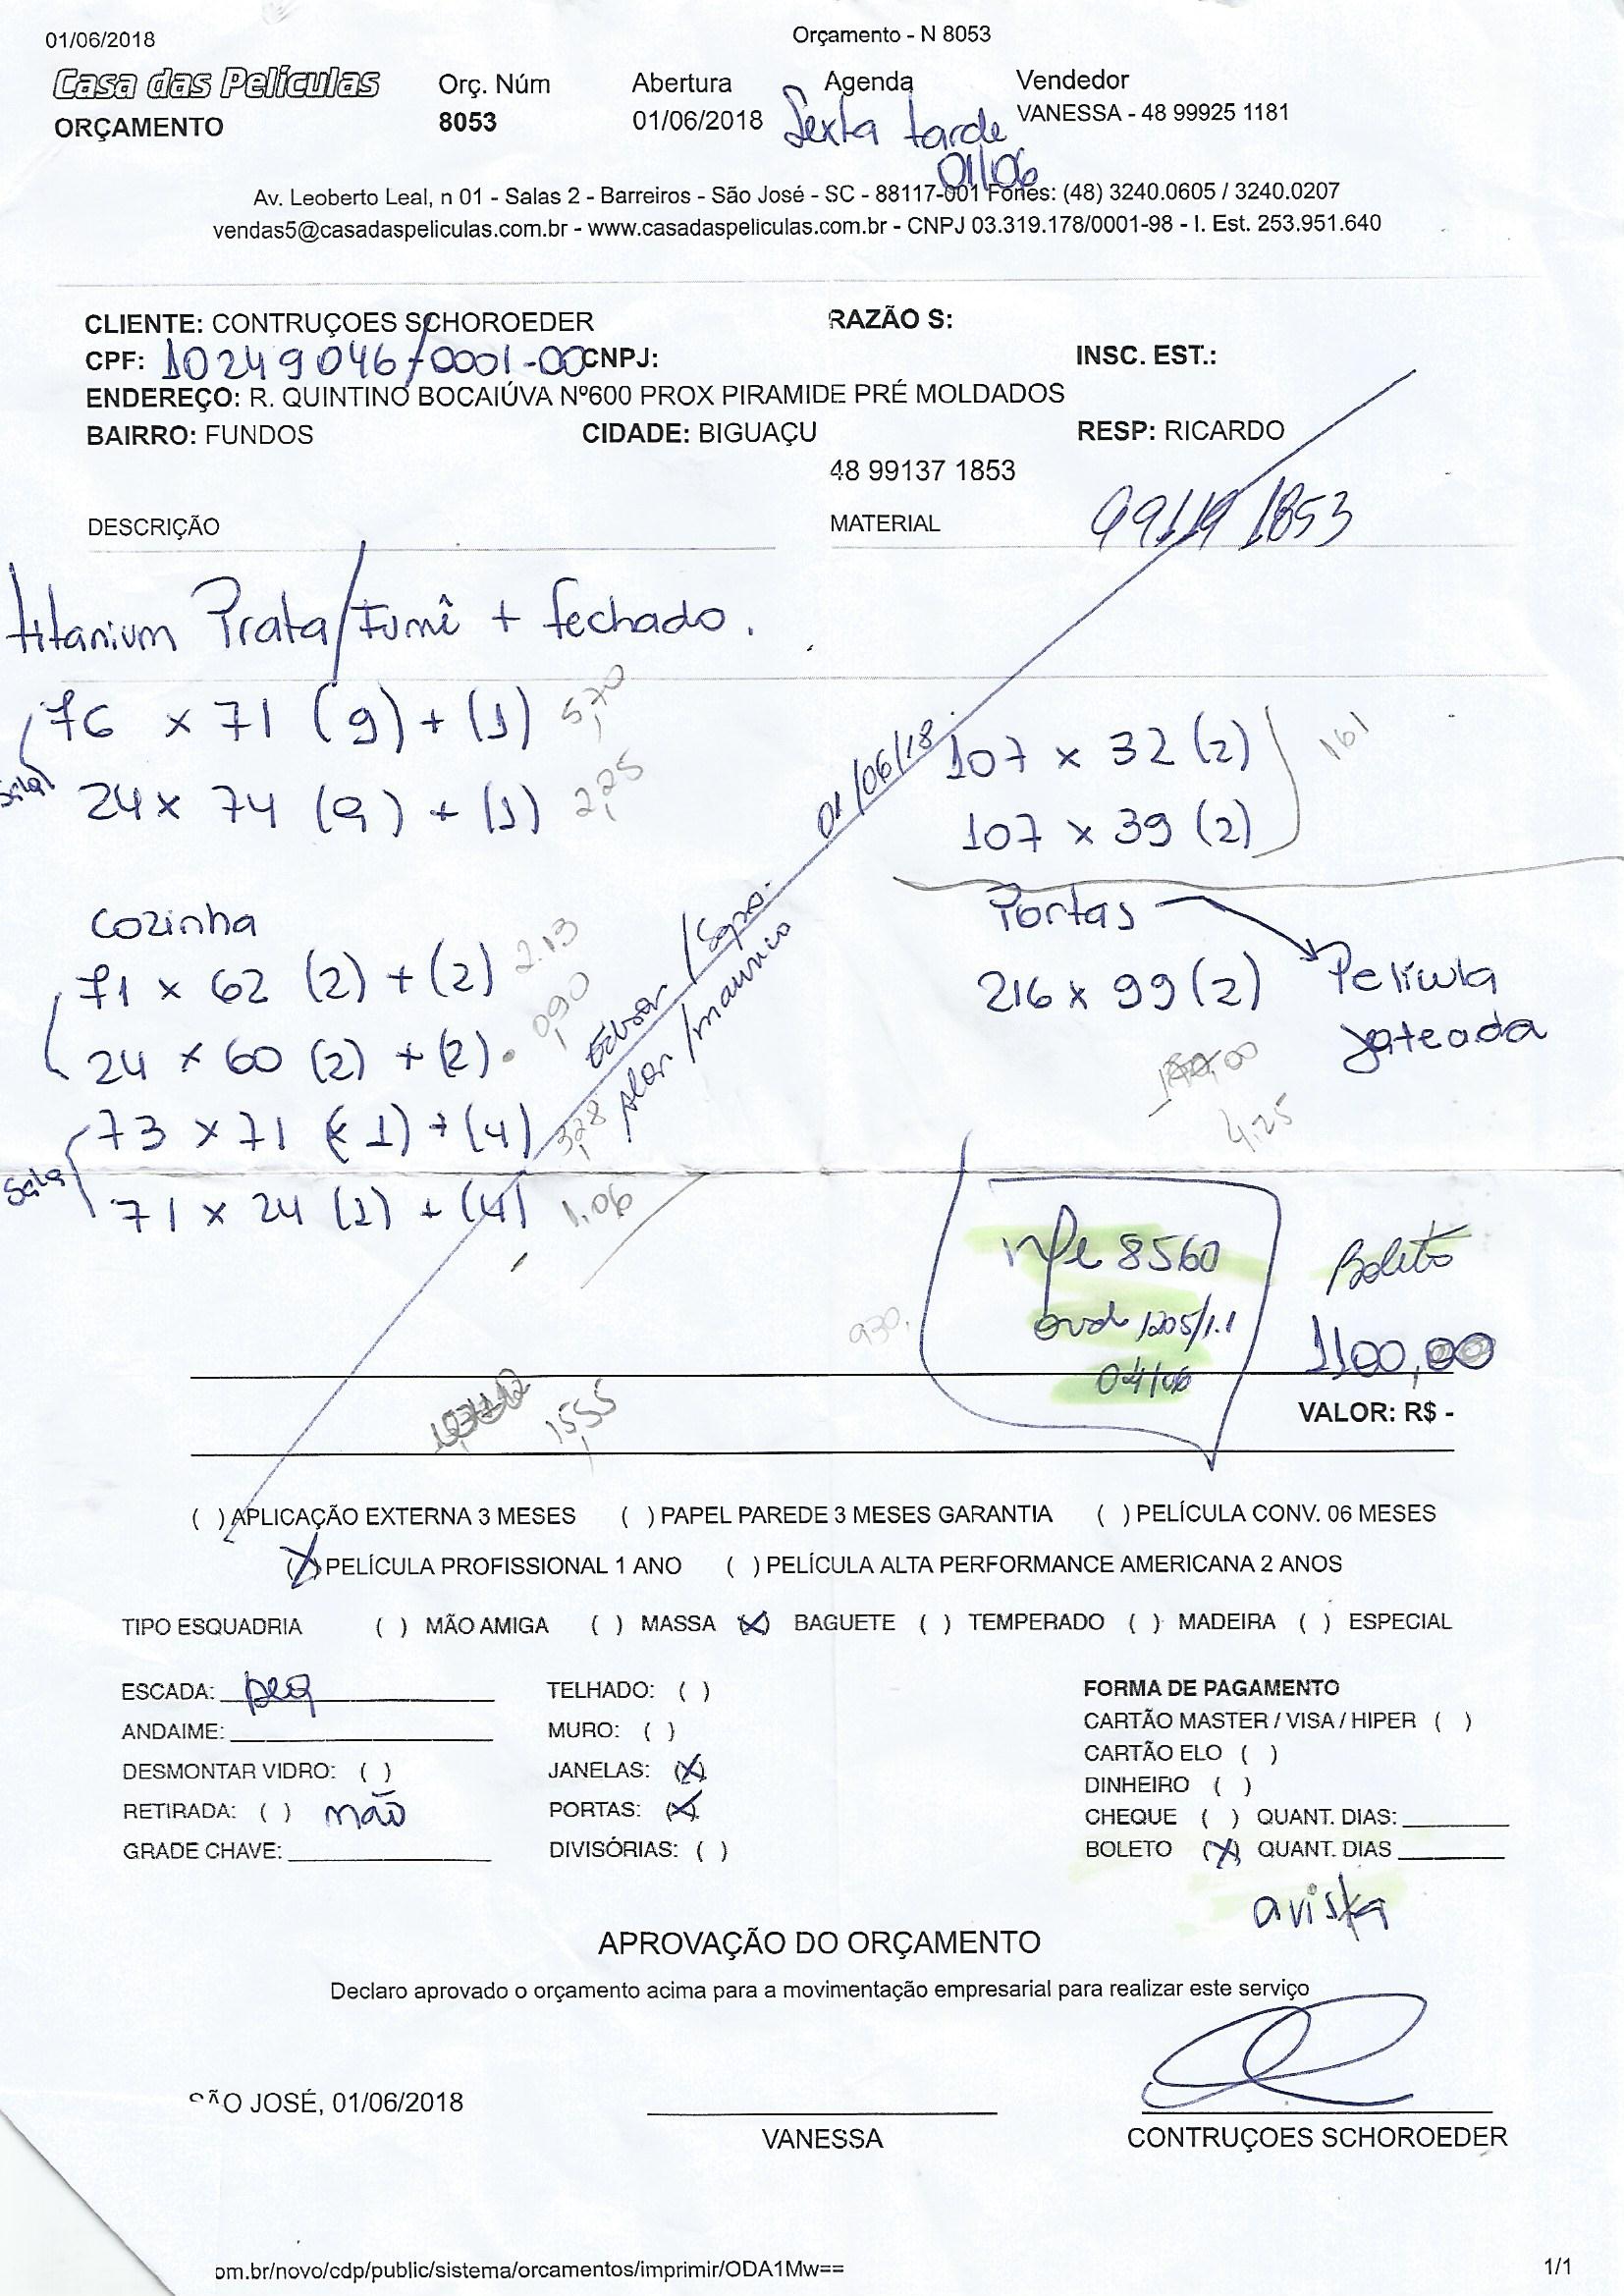 01/06/2018 Orçamento - N 8053
Casa das Películas Orç. Núm Abertura Agenda Vendedor
ORÇAMENTO 8053 01/06/2018 Sexta tarde VANESSA - 48 99925 1181
01/06
Av. Leoberto Leal, n 01 - Salas 2 - Barreiros - São José - SC - 88117-001 Fones: (48) 3240.0605 / 3240.0207
vendas5@casadaspeliculas.com.br - www.casadaspeliculas.com.br - CNPJ 03.319.178/0001-98 - I. Est. 253.951.640
CLIENTE: CONTRUÇOES SCHOROEDER RAZÃO S:
CPF: 10249046/0001-00 CNPJ: INSC. EST.:
ENDEREÇO: R. QUINTINO BOCAIÚVA Nº600 PROX PIRAMIDE PRÉ MOLDADOS
BAIRRO: FUNDOS CIDADE: BIGUAÇU RESP: RICARDO
48 99137 1853
DESCRIÇÃO MATERIAL 99119 1853
titanium Prata/Fumê + fechado.
76 x 71 (9) + (1) 5,70
Sala
24 x 74 (9) + (1) 2,25
107 x 32 (2) 161
107 x 39 (2)
01/06/18
Cozinha
71 x 62 (2) + (2) 2.13
24 x 60 (2) + (2). 0,90
73 x 71 (1) + (4) 3,28
Sala
71 x 24 (1) + (4) 1.06
/maunicio
Portas
216 x 99 (2) Película
Jateada
4.25
nfe 8560
1205/1.1
04/06
Boleto
1100,00
930,
15,55
VALOR: R$ -
( ) APLICAÇÃO EXTERNA 3 MESES ( ) PAPEL PAREDE 3 MESES GARANTIA ( ) PELÍCULA CONV. 06 MESES
(X) PELÍCULA PROFISSIONAL 1 ANO ( ) PELÍCULA ALTA PERFORMANCE AMERICANA 2 ANOS
TIPO ESQUADRIA ( ) MÃO AMIGA ( ) MASSA (X) BAGUETE ( ) TEMPERADO ( ) MADEIRA ( ) ESPECIAL
ESCADA: peq TELHADO: ( ) FORMA DE PAGAMENTO
ANDAIME: MURO: ( ) CARTÃO MASTER / VISA / HIPER ( )
DESMONTAR VIDRO: ( ) JANELAS: (X) CARTÃO ELO ( )
DINHEIRO ( )
RETIRADA: ( ) não PORTAS: (X) CHEQUE ( ) QUANT. DIAS:
GRADE CHAVE: DIVISÓRIAS: ( ) BOLETO (X) QUANT. DIAS
avista
APROVAÇÃO DO ORÇAMENTO
Declaro aprovado o orçamento acima para a movimentação empresarial para realizar este serviço
SÃO JOSÉ, 01/06/2018
VANESSA CONTRUÇOES SCHOROEDER
om.br/novo/cdp/public/sistema/orcamentos/imprimir/ODA1Mw== 1/1